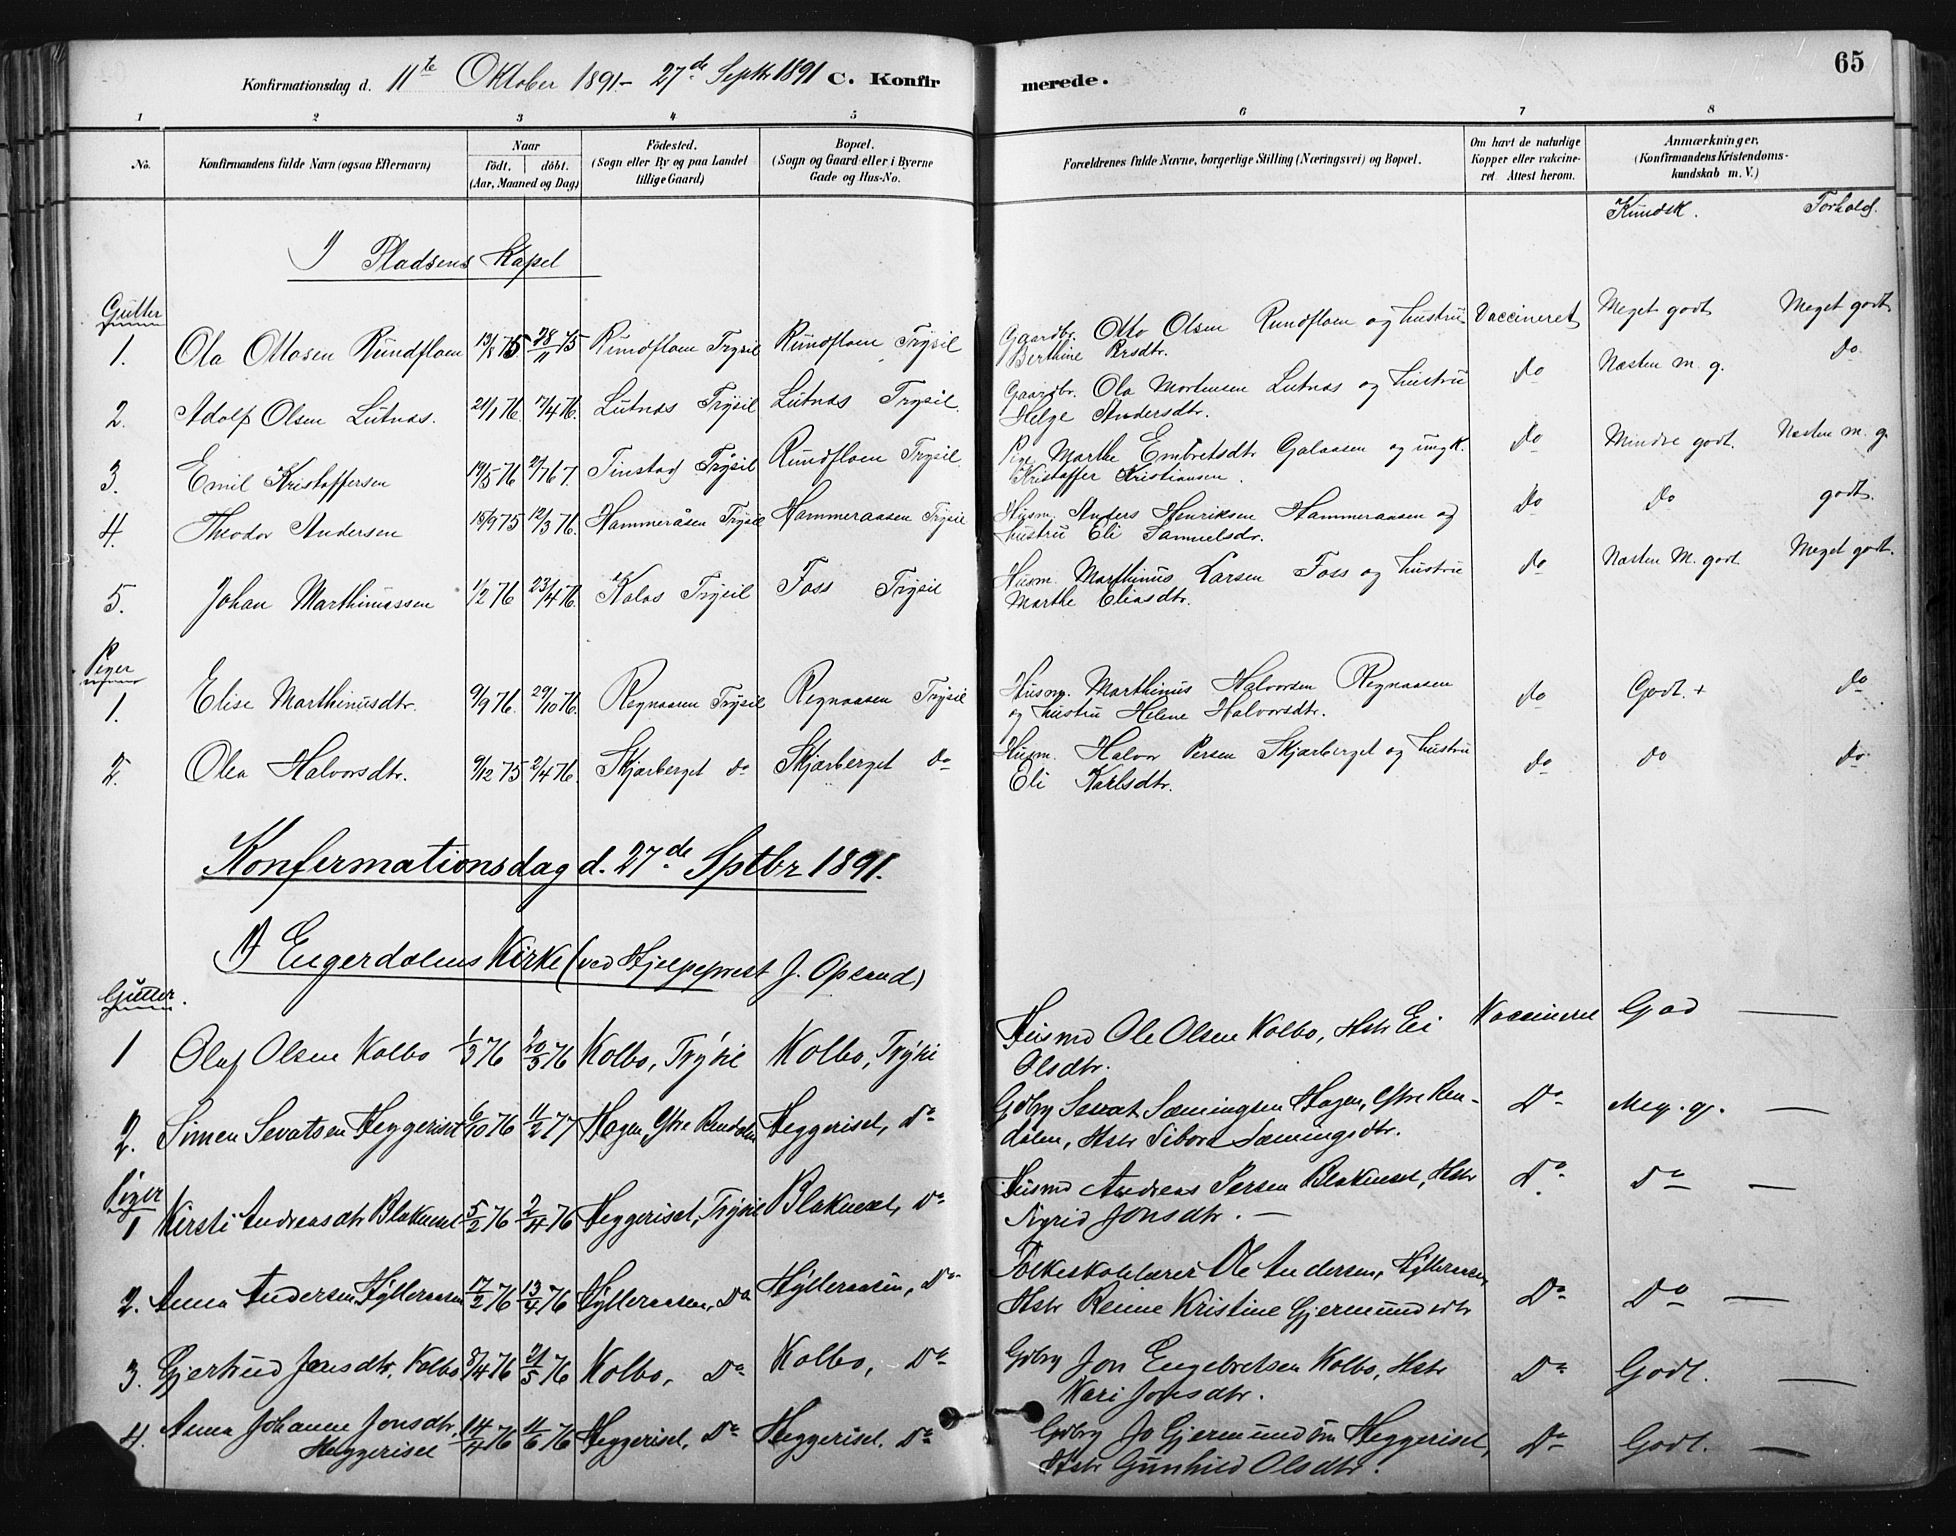 65
Konfirmationsdag d. 11te Oktober 1891 - 27de Septbr 1891 C. Konfirmerede.
1 2 3 4 5 6 7 8
No. Konfirmandens fulde Navn (ogsaa Efternavn) Naar födt. döbt. (Aar, Maaned og Dag) Födested. (Sogn eller By og paa Landet tillige Gaard) Bopæl. (Sogn og Gaard eller i Byerne Gade og Hus-No. Forældrenes fulde Navne, borgerlige Stilling (Næringsvei) og Bopæl. Om havt de naturlige Kopper eller vaccineret. Attest herom. Anmærkninger. (Konfirmandens Kristendomskundskab m. V.)
Kundsk. Forhold.
I Pladsens Kapel
Gutter
1. Ola Ottosen Rundfloen 13/8 75 28/11 75 Rundfloen Trysil Rundfloen Trysil Gaardbr. Otto Olsen Rundfloen og hustru Vaccineret Meget godt Meget godt
Berthine Persdtr.
2. Adolf Olsen Lutnæs. 21/1 76. 17/4 76. Lutnæs Trysil Lutnæs Trysil. Gaardbr. Ola Mortensen Lutnæs og hustru Do Næsten m. g. Do
Helge Andersdtr.
3. Emil Kristoffersen 19/5 76 2/7 67. Tinstad Trysil Rundfloen Trysil Pge Marthe Embretsdtr Galaasen og ungk. Do Mindre godt. Næsten m. g.
Kristoffer Kristiansen.
4. Theodor Andersen 15/9 75 12/3 76. Hammeråsen Trysil Hammeraasen Trysil Husm. Anders Henriksen Hammeraasen og Do Do godt.
hustru Eli Samuelsdr.
5. Johan Marthinussen 1/2 76 23/4 76. Kolos Trysil Foss Trysil Husm. Marthinus Larsen Foss og hustru Do Næsten M. godt Meget godt.
Marthe Eliasdtr.
Piger
1. Elise Marthinusdtr. 9/9 76. 29/10 76. Regnaasen Trysil Regnaasen Trysil Husm. Marthinus Halvorsen Regnaasen Do Godt. + Do
og hustru Helene Halvorsdtr.
2. Olea Halvorsdtr. 9/12 75 2/4 76. Skjærberget do Skjærberget Do Husm. Halvor Persen Skjærberget og hustru Do Do Do
Eli Karlsdtr.
Konfermationsdag d. 27de Sptbr 1891.
I Engerdalens Kirke (ved Hjelpeprest J. Opsand)
Gutter.
1 Olaf Olsen Kolbo 1/3 76 20/3 76 Kolbo, Trysil Kolbo, Trysil Husmd Ole Olsen Kolbo, Hstr Eli Vaccineret God —
Olsdtr.
2. Simen Sevatsen Heggeriset 6/10 76 11/2 77 Hagen Ytre Rendalen Heggeriset, Do Gdbrg Sevat Sæmingsen Hagen, Ytre Ren- Do Meg. g. —
dalen, Hstr Sibora Sæmingsdtr.
Piger
1 Kirsti Andreasdtr Blakneset 5/2 76 2/4 76 Heggeriset, Trysil Blakneset, Do Husmd Andreas Persen Blakneset, Hstr Do Do —
Sigrid Jonsdtr. —
2. Anna Andersen Hylleraasen 17/2 76 13/4 76 Hylleraasen, Do Hylleraasen, Do Folkeskolelærer Ole Andersen, Hylleraasen Do Do —
Hstr Renne Kristine Gjermundsdtr
3. Gjertrud Jonsdtr, Kolbo 8/4 76 21/5 76 Kolbo, Do Kolbo, Do Gdbrg Jon Engebretsen Kolbo, Hstr Do Godt. —
Kari Jonsdtr.
4. Anna Johanne Jonsdtr, 14/4 76 11/6 76 Heggeriset, Do Heggeriset. Do Gdbrg Jo Gjermundsen Heggeriset, Do Godt. —
Heggeriset Hstr Gunhild Olsdtr.